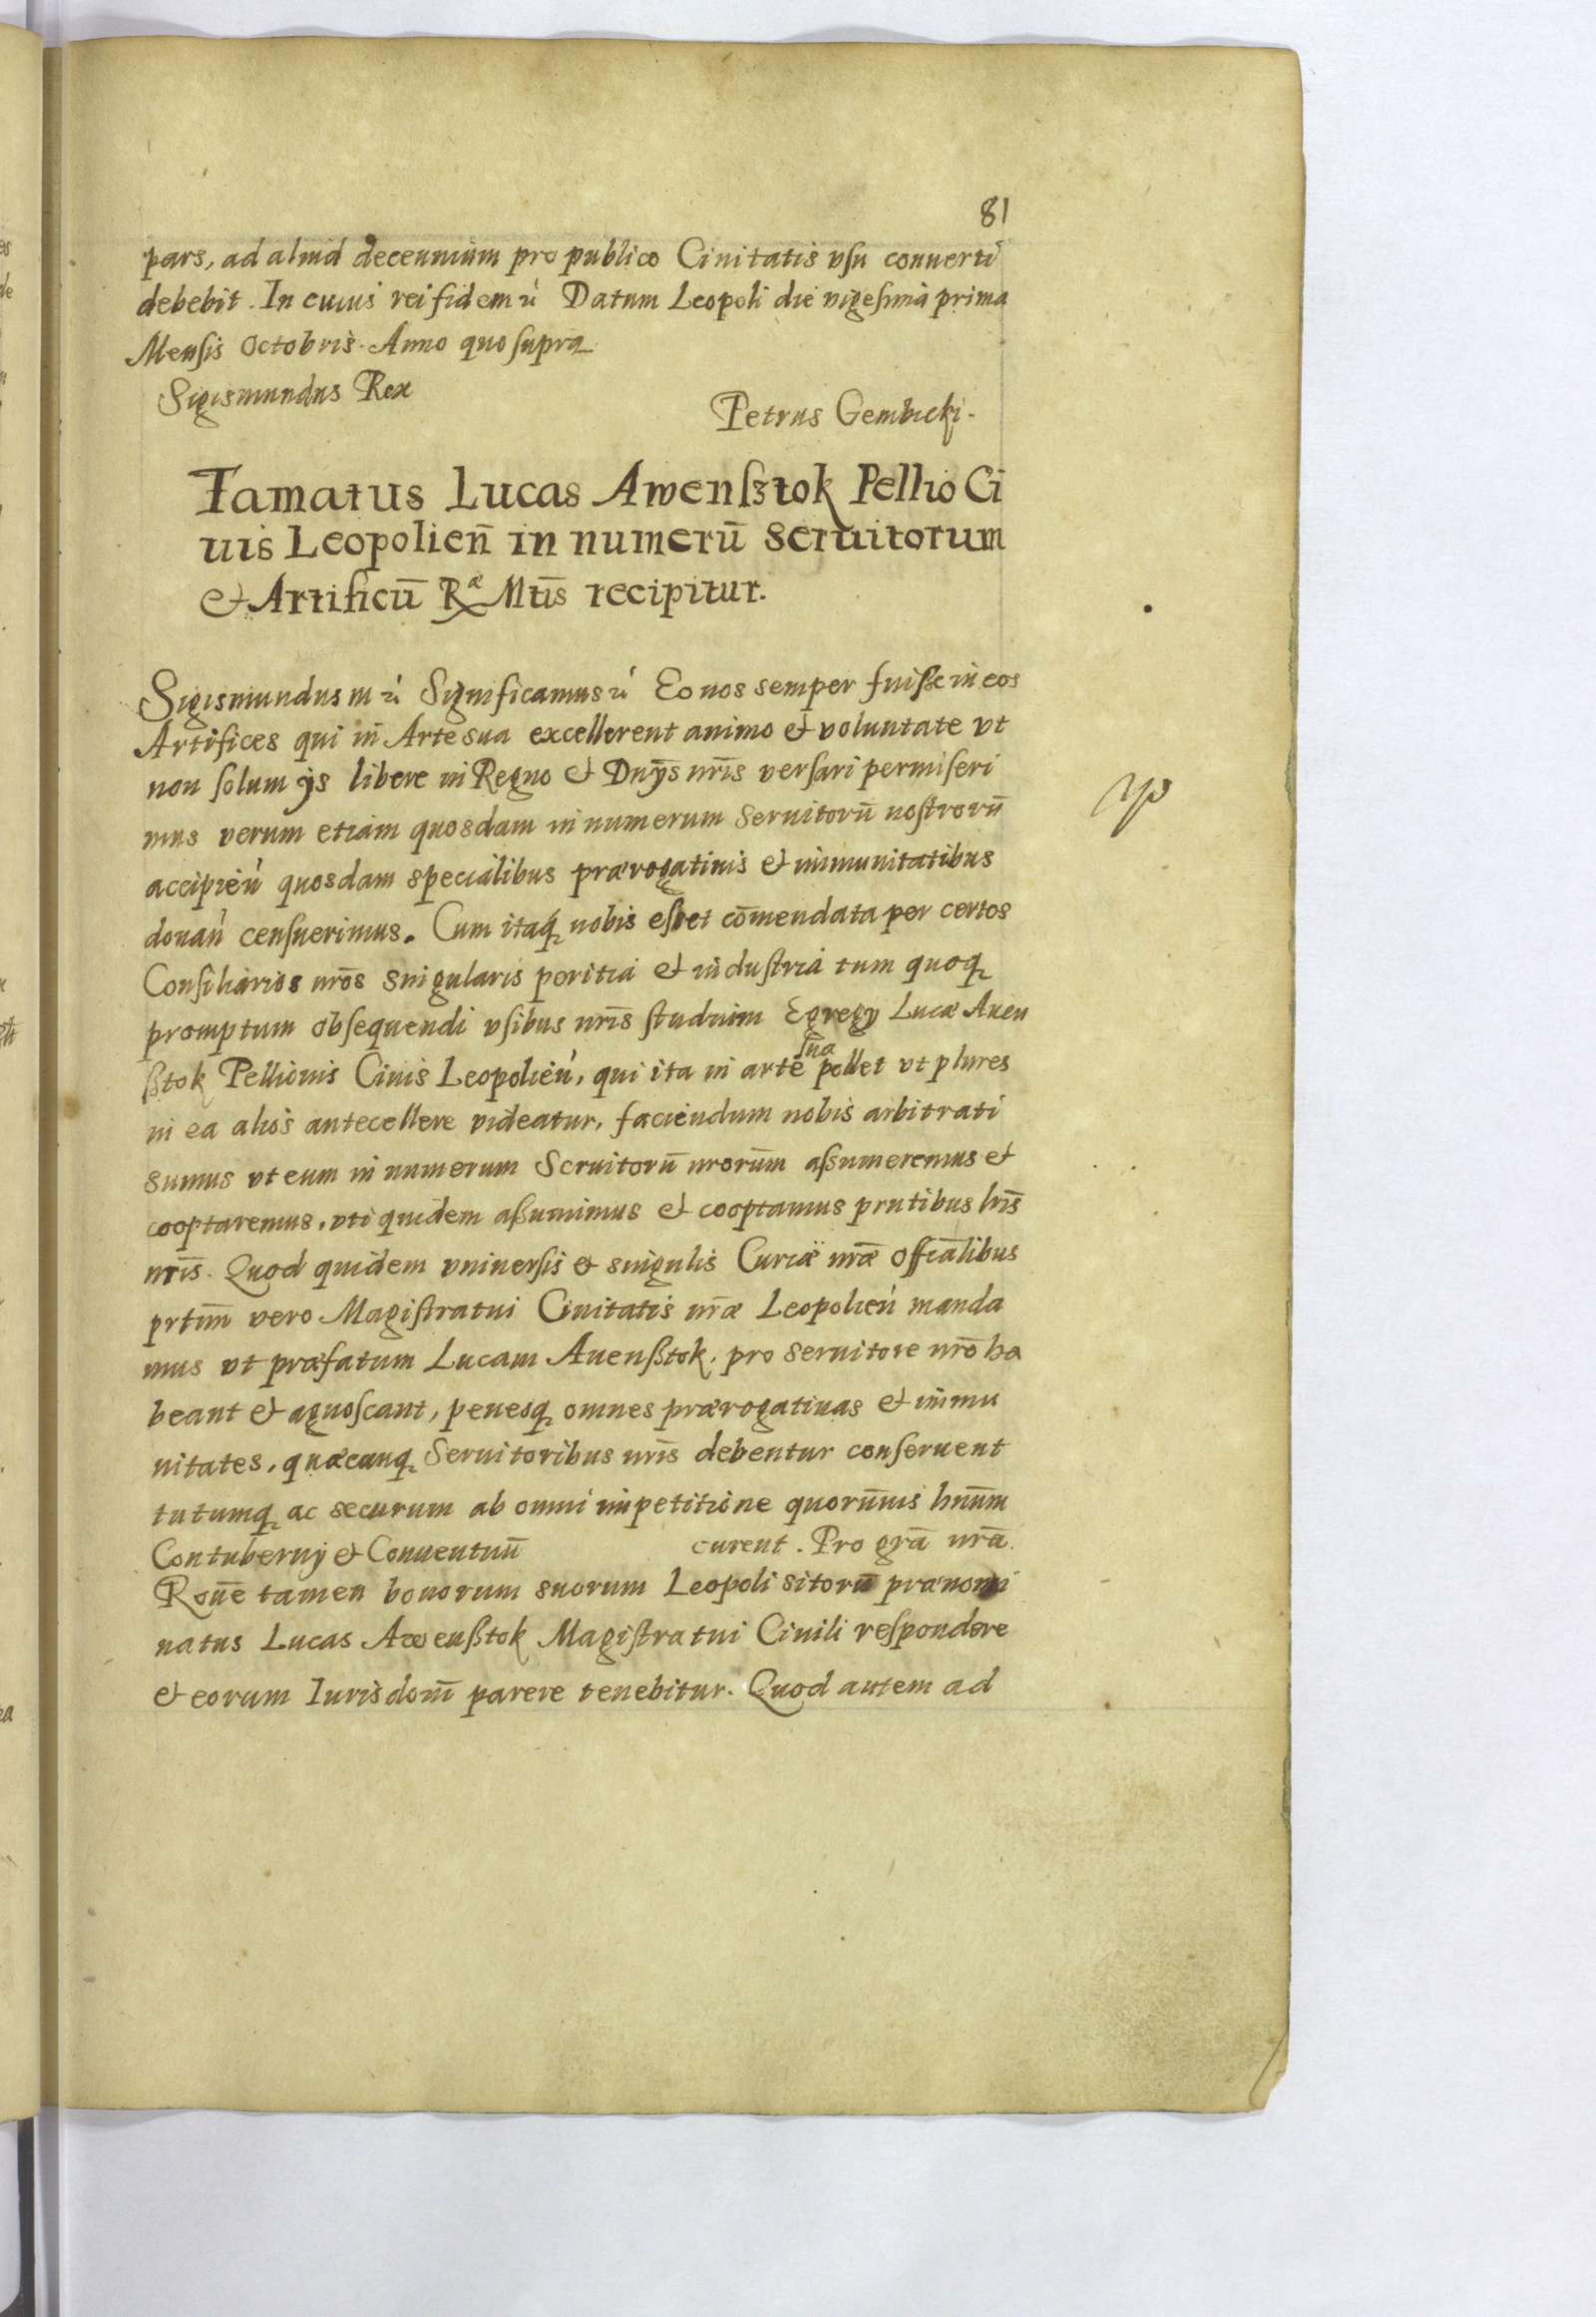 81
pars, ad aliud decennium pro publico Ciuitatis vsu conuerti
debebit. In cuius rei fidem rc̀ Datum Leopoli die vigesima prima
Mensis Octobris. Anno quo supra
Sigismundus Rex
Petrus Gembicki.
Famatus Lucas Awensztok Pellio Ci
uis Leopolien̄ in numerū Seruitorum
et Artificū Rᵃᵉ Mtīs recipitur.
Sigismundus III rc̀ Significamus rc̀ Eo nos semper fuisse in eos
Artifices qui in Arte sua excellerent animo et voluntate vt
non solum ijs libere in Regno et Dnijs nr̄is versari permiseri
mus verum etiam quosdam in numerum Seruitorū nostrorū
accipień quosdam specialibus prærogatiuis et immunitatibus
donań censuerimus. Cum itaq; nobis esset com̄endata per certos
Consiliarios nr̄os singularis peritia et industria tum quoq;
promptum obsequendi vsibus nr̄is studium Egregij Lucæ Auen
sztok Pellionis Ciuis Leopolień, qui ita in arte sua pollet vt plures
in ea alios antecellere videatur, faciendum nobis arbitrati
sumus vt eum in numerum Seruitorū nrorūm assumeremus et
cooptaremus, vti quidem assumimus et cooptamus pr̄ntibus lr̄is
nr̄is. Quod quidem vniuersis et singulis Curiæ nr̄æ Officālibus
prtīm vero Magistratui Ciuitatis nr̄æ Leopolień manda
mus vt præfatum Lucam Auensztok, pro seruitore nr̄o ha
beant et agnoscant, penesq; omnes prærogatiuas et immu
nitates, quæcunq; Seruitoribus nr̄is debentur conseruent
tutumq; ac securum ab omni impetitione quorūmuis hnūm
Contubernij et Conuentuū curent. Pro gr̄a nr̄a.
Rōne tamen bonorum suorum Leopoli sitorū prænomi
natus Lucas Awensztok Magistratui Ciuili respondere
et eorum Iurisdōni parere tenebitur. Quod autem ad